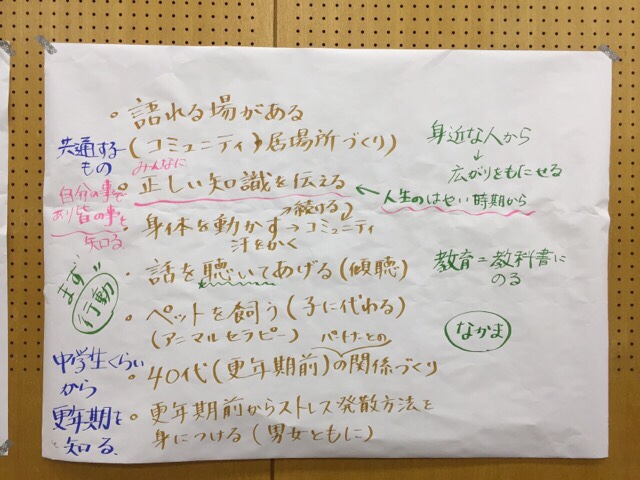 ・語れる場がある
(コミュニティ、居場所づくり)
みんなに
・正しい知識を伝える ← 人生のはやい時期から
→続ける
・身体を動かす→コミュニティ
汗をかく
・話を聴いてあげる(傾聴)
・ペットを飼う(子に代わる)
(アニマルセラピー)
パートナーとの
・40代(更年期前)の関係づくり
・更年期前からストレス発散方法を
身につける(男女ともに)
共通する
もの
自分の事で
あり皆の事を
知る
まず!!
行動
中学生くらい
から
更年期を
知る.
身近な人から
↓
広がりをもにせる
教育=教科書に
のる
なかま